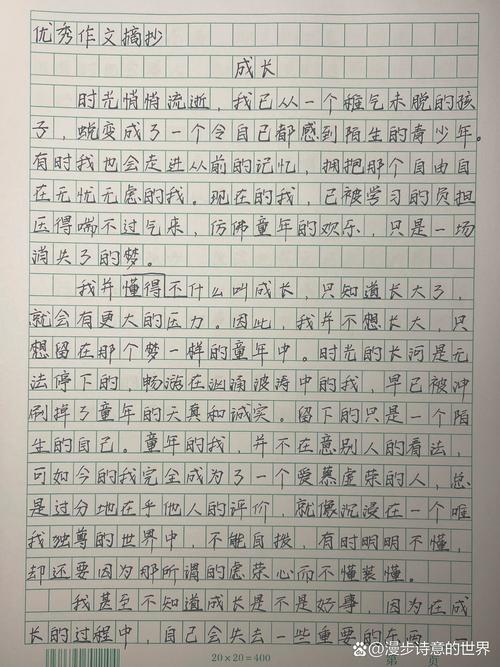 优秀作文摘抄
成长
时光悄悄流逝，我已从一个稚气未脱的孩
子，蜕变成了一个令自己都感到陌生的青少年。
有时我也会走进从前的记忆，拥抱那个自由自
在无忧无虑的我。现在的我，已被学习的负担
压得喘不过气来，仿佛童年的欢乐，只是一场
消失了的梦。
我并懂得不什么叫成长，只知道长大了，
就会有更大的压力。因此，我并不想长大，只
想留在那个梦一样的童年中。时光的长河是无
法停下的，畅游在汹涌波涛中的我，早已被冲
刷掉了童年的天真和诚实。留下的只是一个陌
生的自己。童年的我，并不在意别人的看法，
可如今的我完全成为了一个爱慕虚荣的人，总
是过分地在乎他人的评价，就像沉浸在一个唯
我独尊的世界中，不能自拨，有时明明不懂，
却还要因为那所谓的虚荣心而不懂装懂。
我甚至不知道成长是不是好事，因为在成
长的过程中，自己会失去一些重要的东西，一
20×20=400
第 页
@漫步诗意的世界